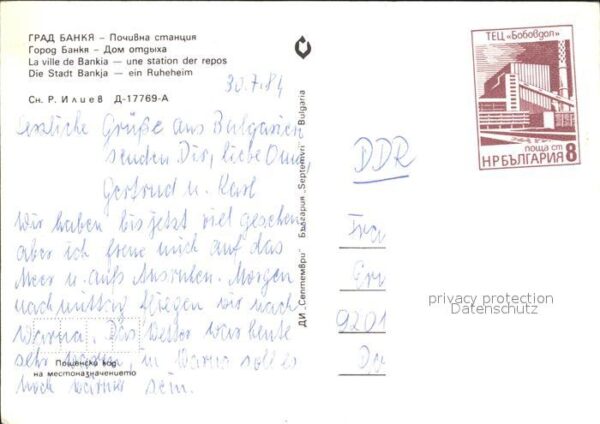 ГРАД БАНКЯ – Почивна станция
Город Банкя – Дом отдыха
La ville de Bankia — une station der repos
Die Stadt Bankja — ein Ruheheim
Сн. Р. Илиев Д-17769-А
30.7.84
Herzliche Grüße aus Bulgarien
senden Dir, liebe Omi,
Gertrud u. Karl
Wir haben bis jetzt viel gesehen
aber ich freue mich auf das
Meer u. aufs Ausruhen. Morgen
nachmittag fliegen wir nach
Warna. Das Wetter war heute
sehr warm, in Warna soll es
noch wärmer sein.
Пощенски код
на местоназначението
ДИ „Септември" България „Septemvri" Bulgaria
ТЕЦ „Бобовдол"
ПОЩА СТ
НРБЪЛГАРИЯ 8
DDR
Fra
9201
privacy protection
Datenschutz